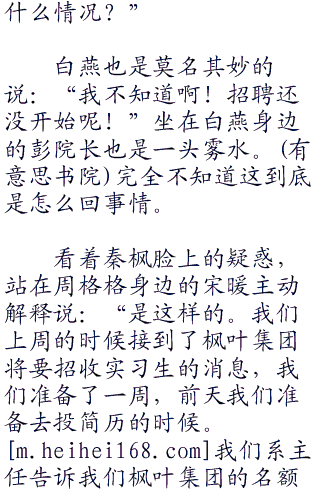 什么情况？”
白燕也是莫名其妙的
说：“我不知道啊！招聘还
没开始呢！”坐在白燕身边
的彭院长也是一头雾水。(有
意思书院)完全不知道这到底
是怎么回事情。
看着秦枫脸上的疑惑，
站在周格格身边的宋暖主动
解释说：“是这样的。我们
上周的时候接到了枫叶集团
将要招收实习生的消息，我
们准备了一周，前天我们准
备去投简历的时候。
[m.heihei168.com]我们系主
任告诉我们枫叶集团的名额